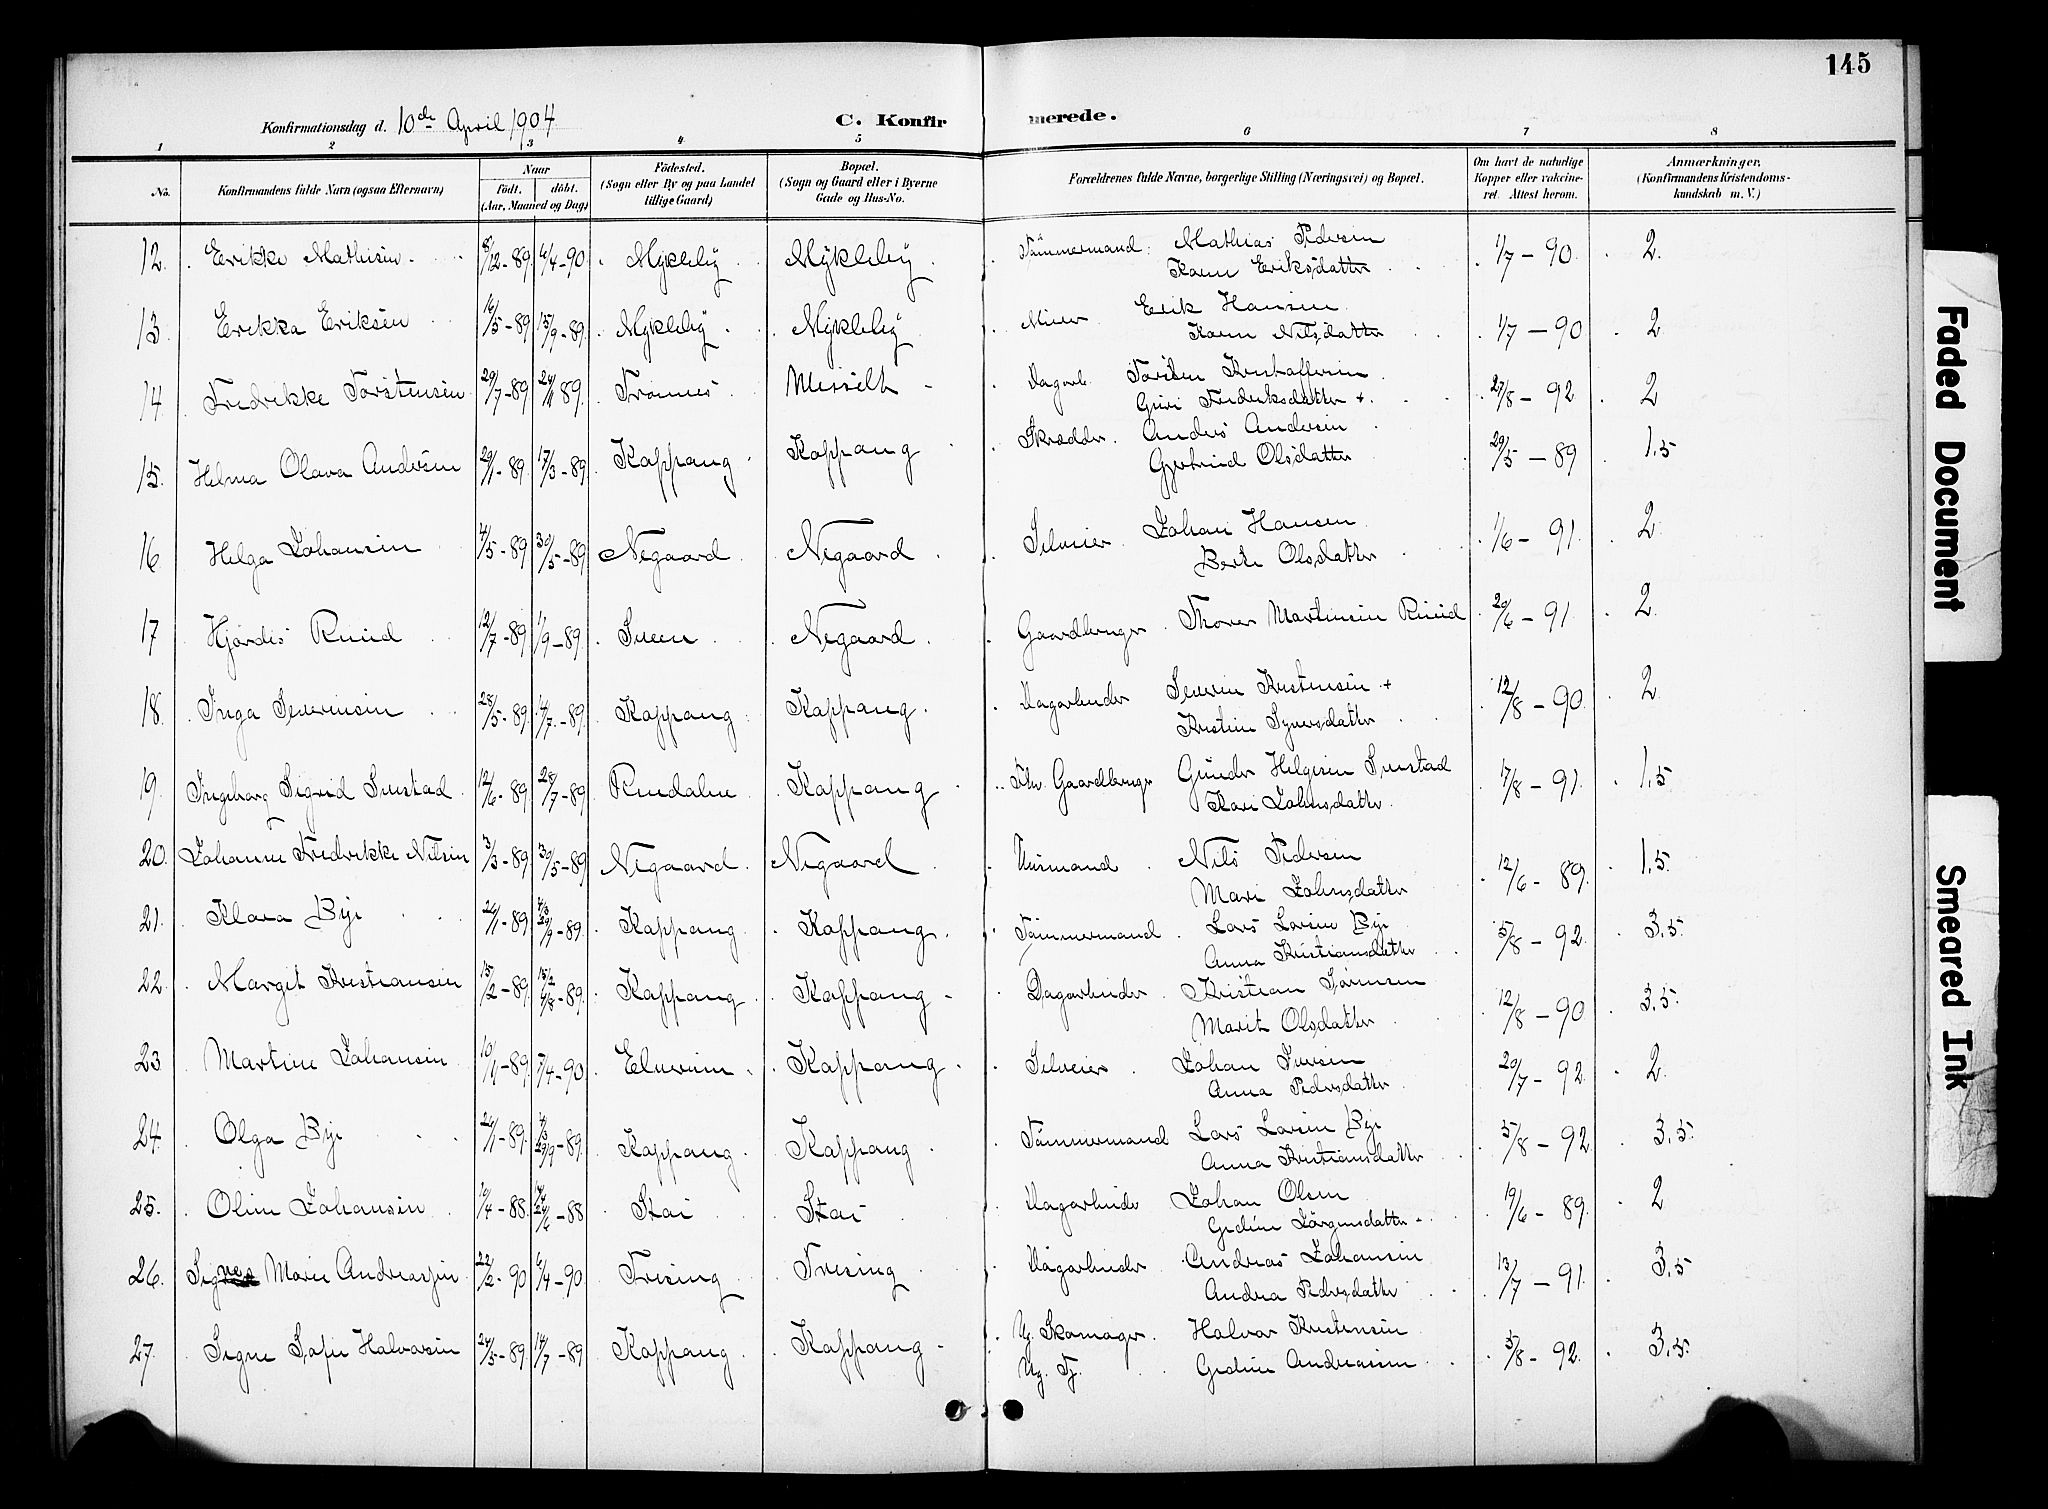 145
Konfirmationsdag d. 10de April 1904 C. Konfirmerede.
1 2 3 4 5 6 7 8
No. Konfirmandens fulde Navn (ogsaa Efternavn) Naar født. døbt. (Aar, Maaned og Dag) Fødested. (Sogn eller By og paa Landet tillige Gaard) Bopæl. (Sogn og Gaard eller i Byerne Gade og Hus-No. Forældrenes fulde Navne, borgerlige Stilling (Næringsvei) og Bopæl. Om havt de naturlige Kopper eller vakcineret. Attest herom. Anmærkninger. (Konfirmandens Kristendomskundskab m. V.)
12. Erikke Mathisen 8/12-89 6/4-90 Mykleby Mykleby Tømmermand Mathias Pedersen 1/7-90 2
Karen Eriksdatter
13. Erikka Eriksen 16/5-89 15/9-89 Mykleby Mykleby Erik Hansen 1/7-90 2
Karen Nilsdatter
14. Fredrikke Torstensen 29/7-89 Trønnes Messelt Dagarb. Torsten Kristoffersen 27/8-92 2
Guri Fredriksdatter +
15. Helma Olava Andersen 29/1-89 17/3-89 Koppang Koppang Skrædder Anders Andersen 29/5-89 1,5
Gjertrud Olsdatter
16 Helga Johansen 4/5-89 30/5-89 Negaard Negaard Selveier Johan Hansen 1/6-91 2
Berte Olsdatter
17 Hjørdis Ruud 12/7-89 1/9-89 Sveen Negaard Gaardbruger Thorer Martinsen Ruud 20/6-91 2
18. Inga Severinsen 28/5-89 14/7-89 Koppang Koppang Dagarbeider Severin Kristensen + 12/8-90 2
Kristine Syversdatter
19. Ingeborg Sigrid Snestad 12/6-89 28/7-89 Rendalen Koppang Fhv. Gaardbruger Gunder Helgesen Snestad 17/8-91 1,5
Kari Johnsdatter
20. Johanne Fredrikke Nilsen 3/3-89 30/5-89 Negaard Negaard Husmand Nils Pedersen 12/6-89 1,5
Mari Johnsdatter
21. Klara Bye 26/1-89 4/3 29/9-89 Koppang Koppang Tømmermand Lars Larsen Bye 5/8-92 3,5
Anna Kristiansdatter
22. Margit Kristiansen 15/2-89 15/2 4/8-89 Koppang Koppang Dagarbeider Kristian Sørensen 12/8-90 3,5
Marit Olsdatter
23 Martine Johansen 7/4-90 Elverum Koppang Selveier Johan Iversen 20/7-92 2
Anna Pedersdatter
24. Olga Bye 26/1-89 4/3 29/9-89 Koppang Koppang Tømmermand Lars Larsen Bye 5/8-92 3,5
Anna Kristiansdatter
25. Oline Johansen 10/4-88 Stai Stai Dagarbeider Johan Olsen 19/6-89 2
Gedine Jørgensdatter
26. Signe Marie Andreassen 22/2-90 6/4-90 Treising Treising Dagarbeider Andreas Johansen 13/7-91 3,5
Andrea Pedersdatter
27. Signe Sofie Halvorsen 24/5-89 14/7-89 Koppang Koppang Ug. Skomager Halvor Kristensen 5/8-92 3,5
Ug. Tj. Gedine Andreasen
Faded Document
Smeared Ink